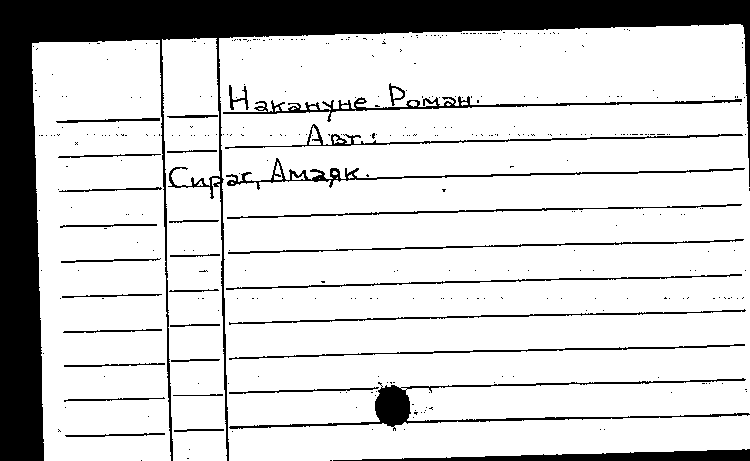 Накануне. Роман.
Авт.:
Сирас, Амаяк.